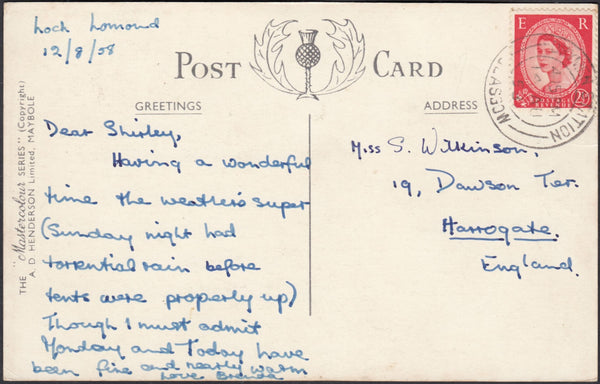 Loch Lomond
12/8/58
POST CARD
GREETINGS
ADDRESS
THE "Mastercolour SERIES" (Copyright)
A. D. HENDERSON Limited, MAYBOLE
Dear Shirley,
Having a wonderful
time the weather's super
(Sunday night had
torrential rain before
tents were properly up)
Though I must admit
Monday and Today have
been fine and nearly warm
Love Brenda
Miss S. Wilkinson,
19, Dawson Ter.
Harrogate.
England.
E R
2½D